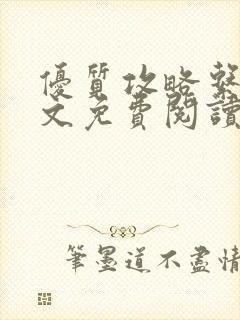 優質攻略繫
文免費閱讀
筆墨道不盡情